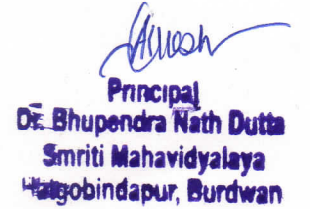 Principal
Dr. Bhupendra Nath Dutta
Smriti Mahavidyalaya
Hatgobindapur, Burdwan